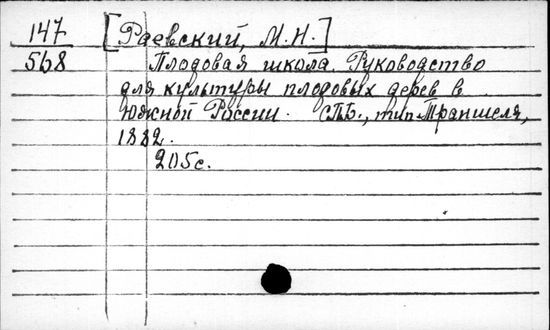 147 [Раевский, М.Н.]
568 Плодовая школа. Руководство
для культуры плодовых дерев в
южной России. СПб., тип. Траншеля,
1882.
205с.